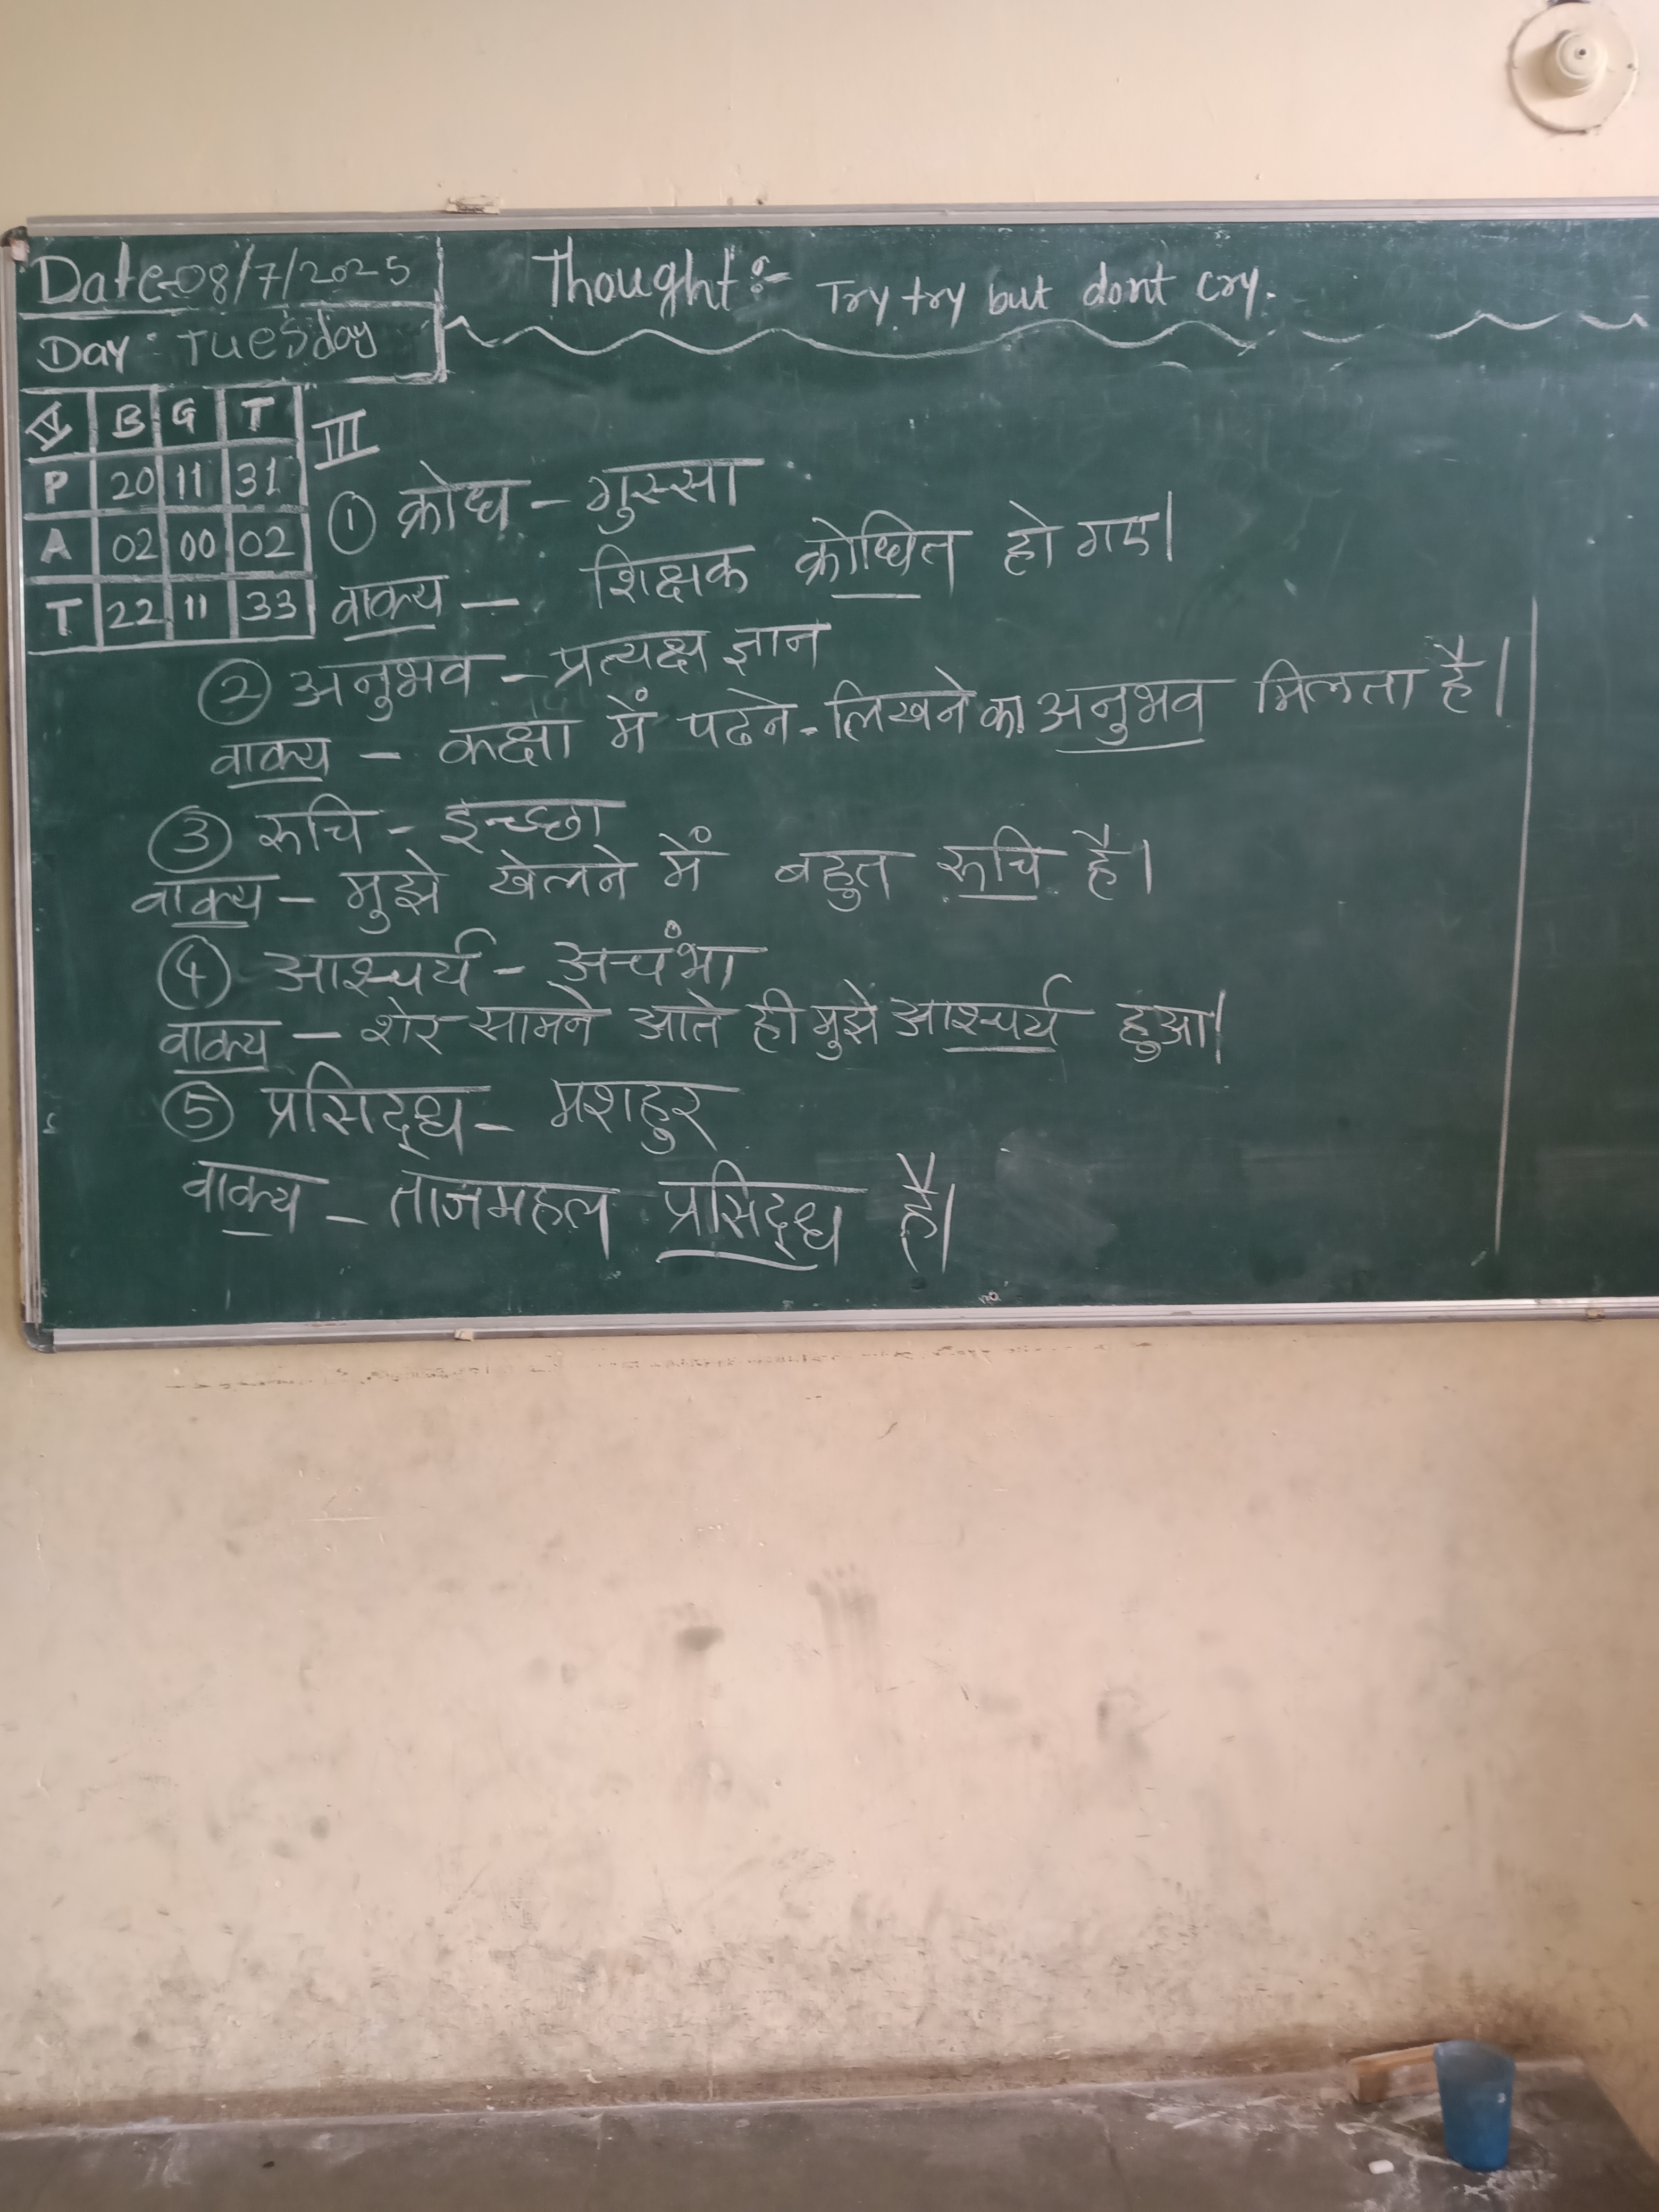 Date-08/7/2025
Thought:- Try try but dont cry.
Day: Tuesday
B G T
P 20 11 31
A 02 00 02
T 22 11 33
III
① क्रोध - गुस्सा
वाक्य - शिक्षक क्रोधित हो गए।
② अनुभव - प्रत्यक्ष ज्ञान
वाक्य - कक्षा में पढने-लिखने का अनुभव मिलता है।
③ रूचि - इच्छा
वाक्य - मुझे खेलने में बहुत रूचि है।
④ आश्चर्य - अचंभा
वाक्य - शेर सामने आते ही मुझे आश्चर्य हुआ।
⑤ प्रसिद्ध - मशहुर
वाक्य - ताजमहल प्रसिद्ध है।